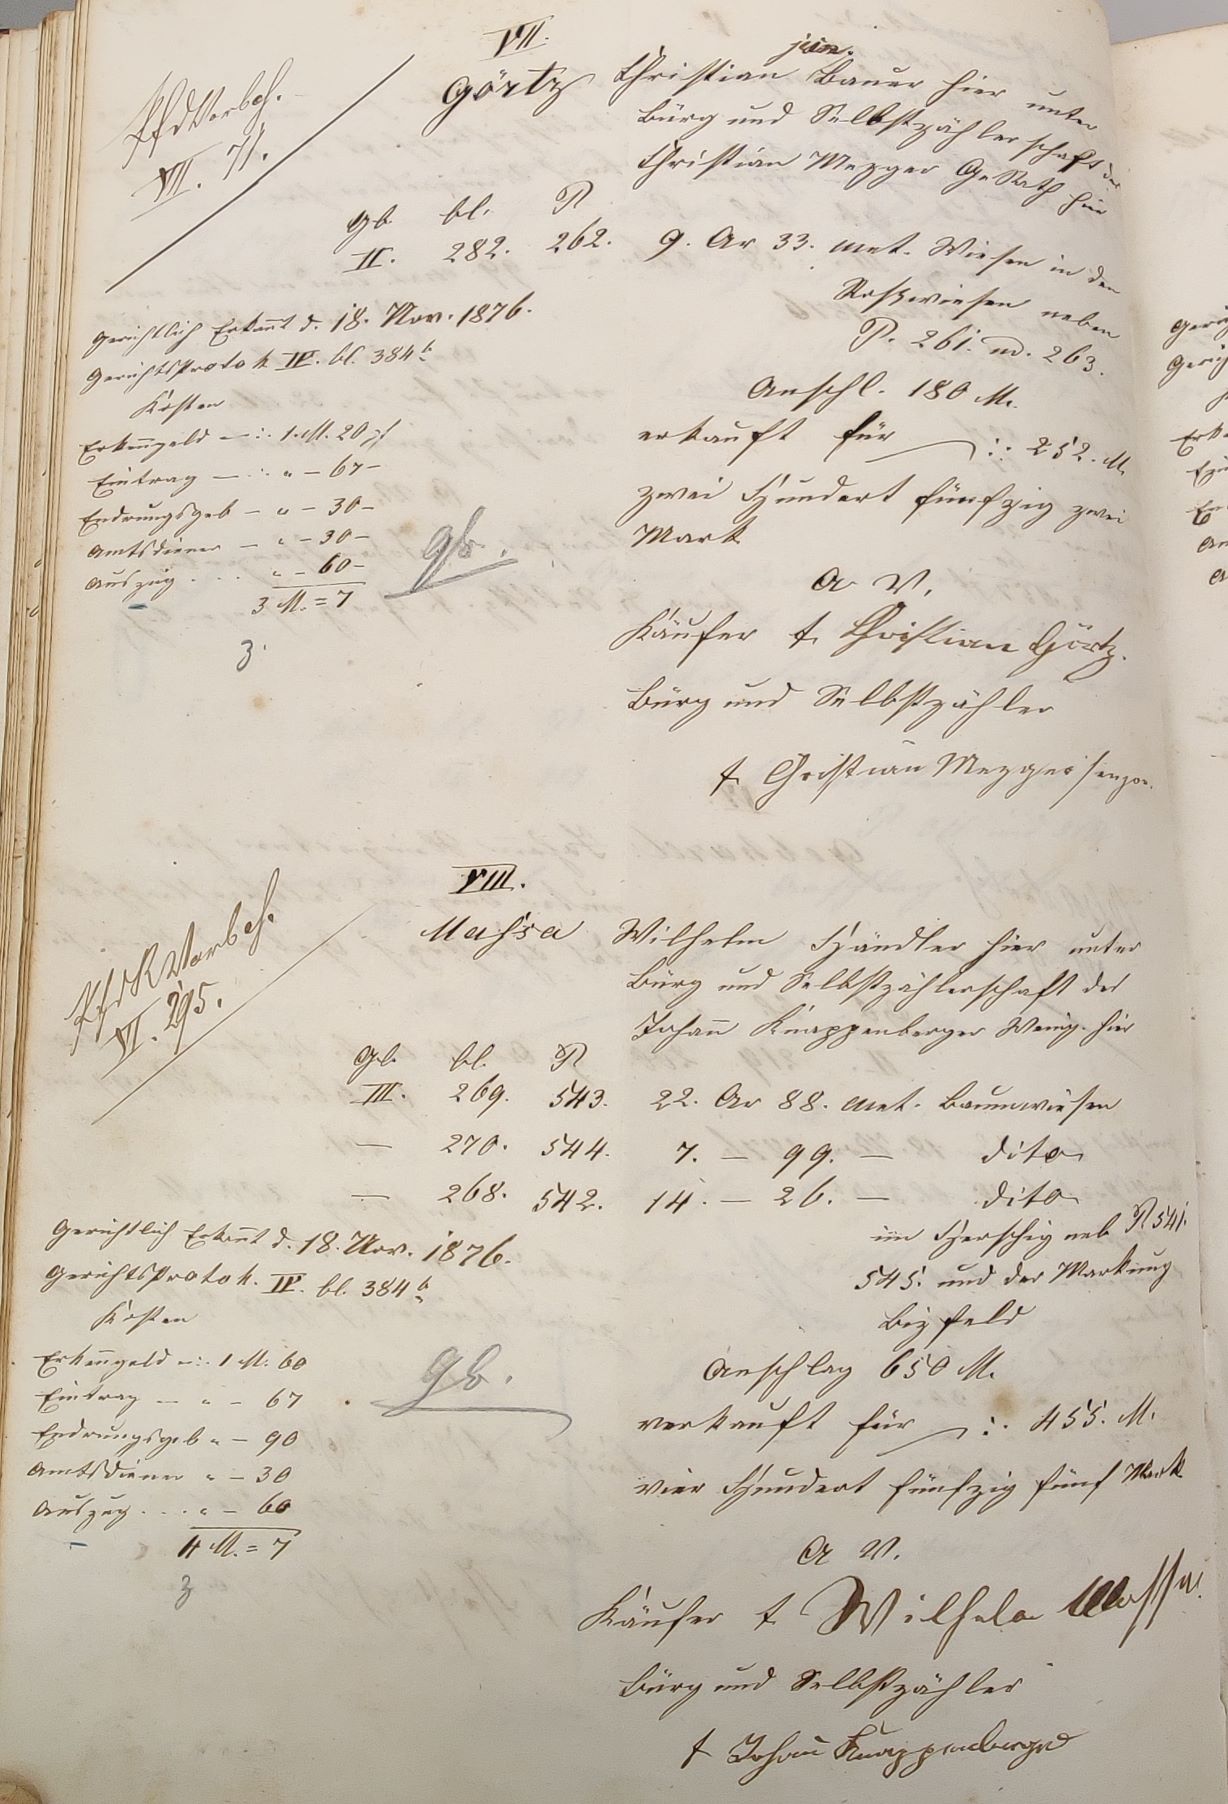 VII.
PfdVorbeh.
VII. 71.
Görtz
jun.
Christian Bauer hier unter
Bürg und Selbstzählerschaft des
Christian Mezger GeRath hier
Gb. bl. P
II. 282. 262. 9. Ar 33. met. Wiesen in den
Roßwiesen neben
P. 261. nd. 263.
Anschl. 180 M.
erkauft für —:: 252. M.
zwei Hundert fünfzig zwei
Mark
a V.
Käufer t. Christian Görtz.
Bürg und Selbstzähler
t. Christian Mezger
Gerichtlich Erkannt d. 18. Nov. 1876.
Gerichtsprotok IV. bl. 384 b
Kosten
Erkenngeld —:. 1. M. 20 pf
Eintrag — .. " — 67 —
Endrungsgeb — " — 30 —
Amtsdiener — " — 30 —
Auszug . . . " — 60 —
3 M. = 7
gb.
3.
VIII.
PfdRVorbeh.
VI. 295.
Massa
Wilhelm Händler hier unter
Bürg und Selbstzählerschaft des
Johann Knappenberger Weing. hier
Gb. bl. P
III. 269. 543. 22. Ar 88. met. Baumwiesen
— 270. 544. 7. — 99. — dito
— 268. 542. 14. — 26. — dito
im Herschig neb P 541.
545. und der Markung
Bizfeld
Anschlag 650 M.
verkauft für —:. 455. M.
vier Hundert fünfzig fünf Mark
a V.
Käufer t. Wilhelm Massa.
Bürg und Selbstzähler
t Johann Knappenberger
Gerichtlich Erkannt d. 18. Nov. 1876.
Gerichtsprotok. IV. bl. 384 b
Kosten
Erkenngeld —:. 1 M. 60
Eintrag — " — 67
Endrungsgeb " — 90
Amtsdiener " — 30
Auszug . . . " — 60
4 M. = 7
gb.
3